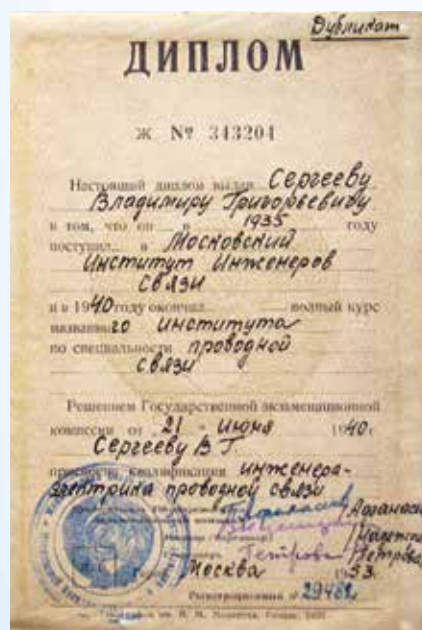 Дубликат
ДИПЛОМ
Ж № 343204
Настоящий диплом выдан Сергееву
Владимиру Григорьевичу
в том, что он в 1935 году
поступил в Московский
Институт Инженеров
связи
и в 1940 году окончил полный курс
названного института
по специальности проводной
связи
Решением Государственной экзаменационной
комиссии от 21 июня 1940 г.
Сергееву В Г.
присвоена квалификация инженера-
электрика проводной связи
Петрова
Москва 1953
Регистрационный № 29482